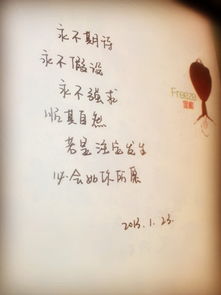 永不期待
永不假设
永不强求
顺其自然
若是注定发生
必会如你所愿
2013.1.23.
Freeze